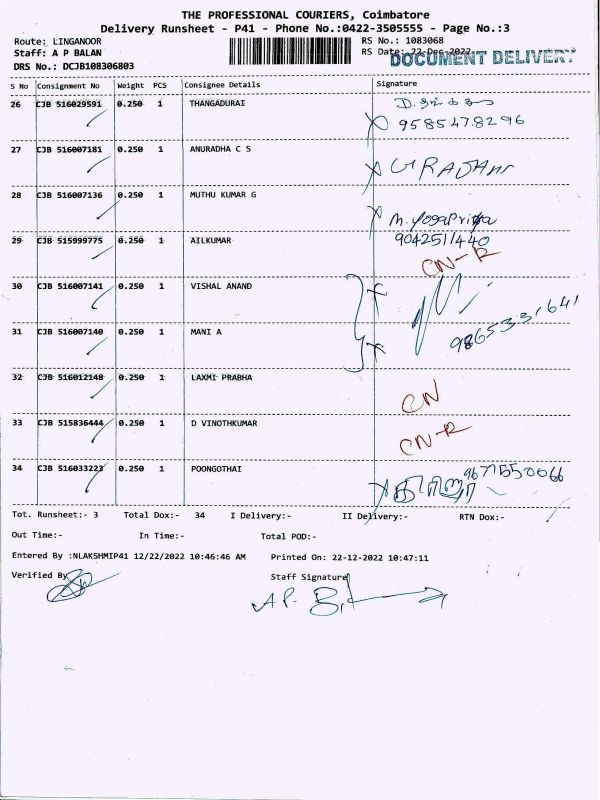 THE PROFESSIONAL COURIERS, Coimbatore
Delivery Runsheet - P41 - Phone No.:0422-3505555 - Page No.:3
Route: LINGANOOR RS No.: 1083068
Staff: A P BALAN RS Date: 22-Dec-2022
DOCUMENT DELIVERY
DRS No.: DCJB108306803
S No Consignment No Weight PCS Consignee Details Signature
26 CJB 516029591 0.250 1 THANGADURAI
9585478296
27 CJB 516007181 0.250 1 ANURADHA C S
28 CJB 516007136 0.250 1 MUTHU KUMAR G
M. Yogapriya
29 CJB 515999775 0.250 1 AILKUMAR 9042511440
CN-R
30 CJB 516007141 0.250 1 VISHAL ANAND
31 CJB 516007140 0.250 1 MANI A 9865331641
32 CJB 516012148 0.250 1 LAXMI PRABHA CN
33 CJB 515836444 0.250 1 D VINOTHKUMAR CN-R
34 CJB 516033223 0.250 1 POONGOTHAI
Tot. Runsheet:- 3 Total Dox:- 34 I Delivery:- II Delivery:- RTN Dox:-
Out Time:- In Time:- Total POD:-
Entered By :NLAKSHMIP41 12/22/2022 10:46:46 AM Printed On: 22-12-2022 10:47:11
Verified By Staff Signature
A P.